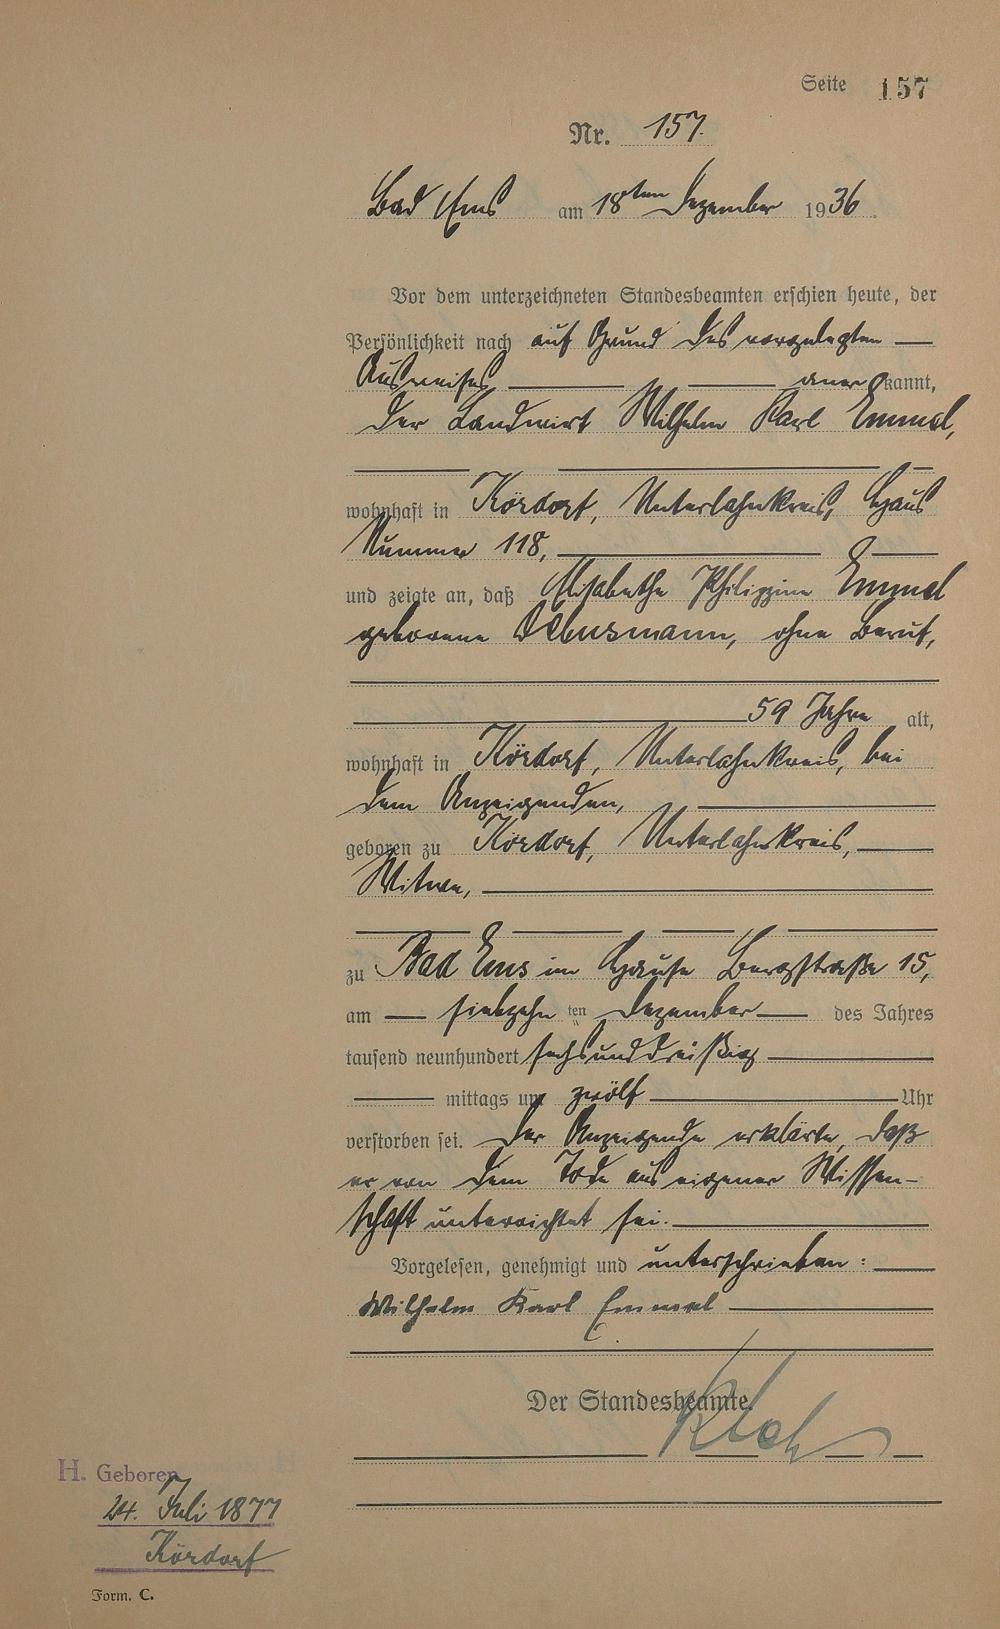 Seite 157
Nr. 157.
Bad Ems am 18ten Dezember 1936
Vor dem unterzeichneten Standesbeamten erschien heute, der
Persönlichkeit nach auf Grund des vorgelegten
Ausweises anerkannt,
der Landwirt Wilhelm Karl Emmel,
wohnhaft in Kördorf, Unterlahnkreis, Haus
Nummer 118,
und zeigte an, daß Elisabethe Philippine Emmel
geborene, ohne Beruf,
59 Jahre alt,
wohnhaft in Kördorf, Unterlahnkreis, bei
dem Anzeigenden,
geboren zu Kördorf, Unterlahnkreis,
Witwe,
zu Bad Ems im Hause Bergstraße 15,
am siebzehnten Dezember des Jahres
tausend neunhundert sechsunddreißig
mittags um zwölf Uhr
verstorben sei. Der Anzeigende erklärte, daß
er von dem Tode aus eigener Wissen-
schaft unterrichtet sei.
Vorgelesen, genehmigt und unterschrieben:
Wilhelm Karl Emmel
Der Standesbeamte.
H. Geboren
24. Juli 1877
Kördorf
Form. C.